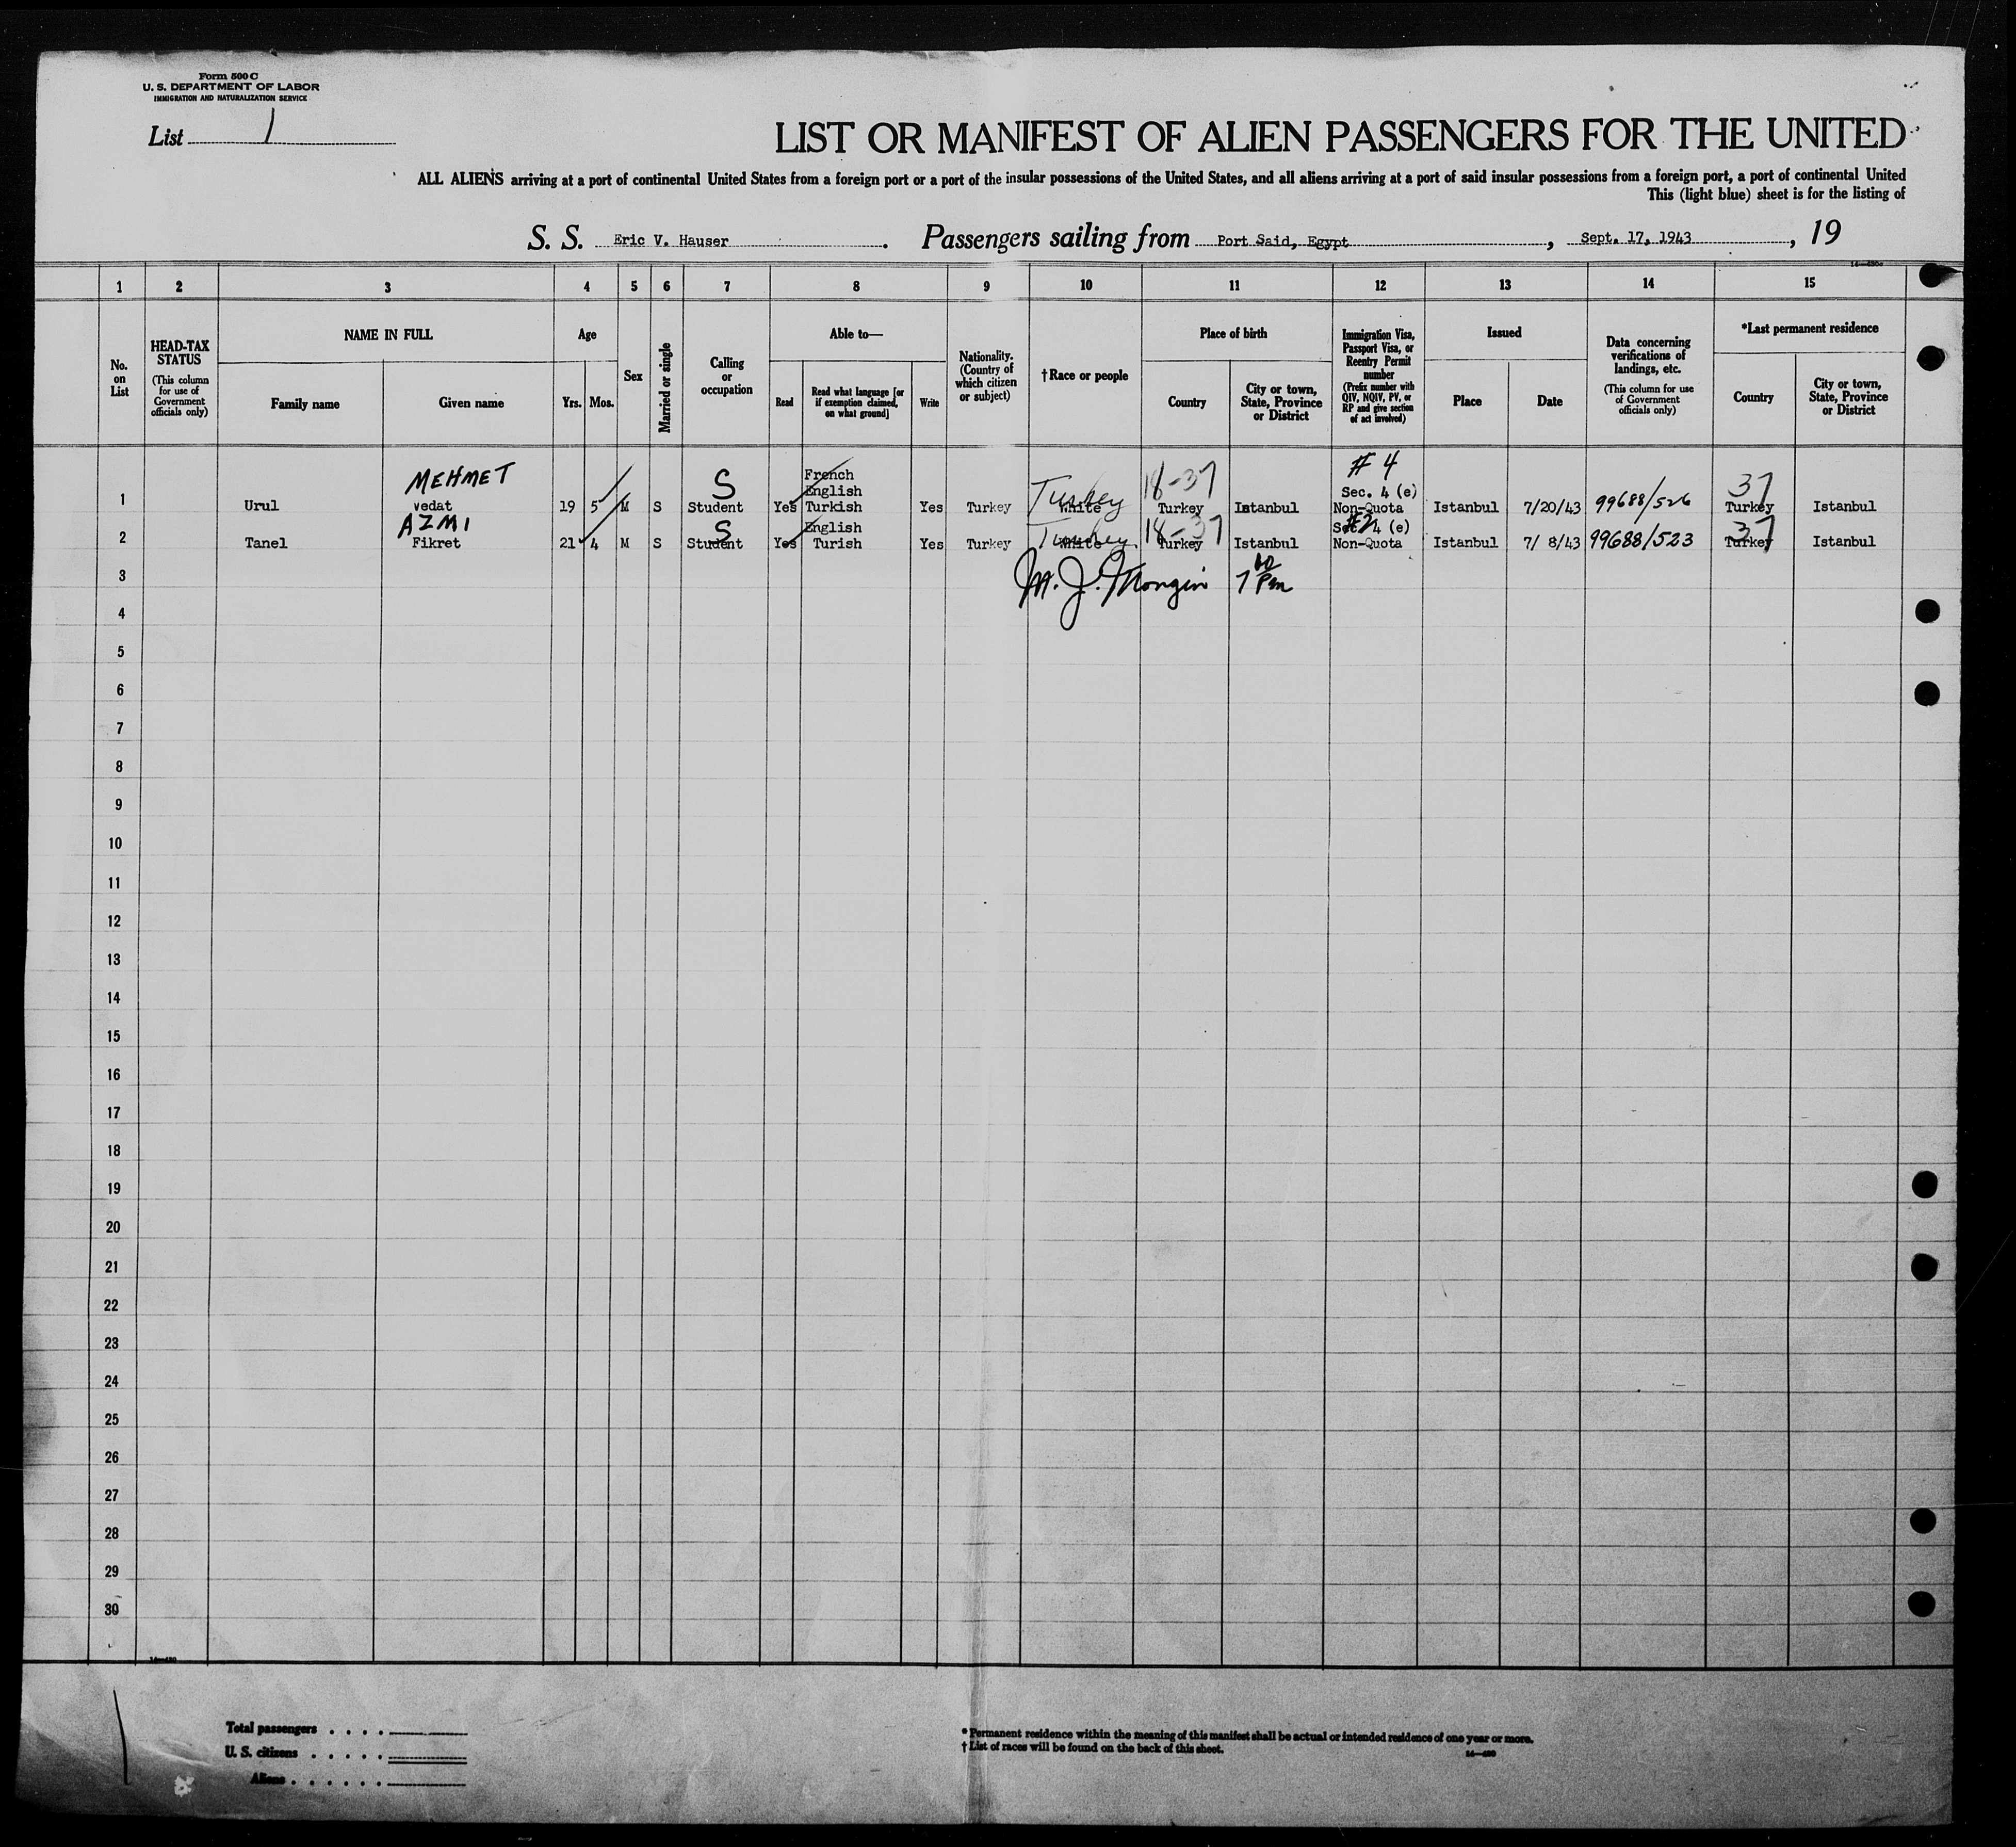 Form 500 C
U. S. DEPARTMENT OF LABOR
IMMIGRATION AND NATURALIZATION SERVICE
List 1
LIST OR MANIFEST OF ALIEN PASSENGERS FOR THE UNITED
ALL ALIENS arriving at a port of continental United States from a foreign port or a port of the insular possessions of the United States, and all aliens arriving at a port of said insular possessions from a foreign port, a port of continental United
This (light blue) sheet is for the listing of
S. S. Eric V. Hauser. Passengers sailing from Port Said, Egypt, Sept. 17, 1943, 19
1 2 3 4 5 6 7 8 9 10 11 12 13 14 15
No. on List
HEAD-TAX STATUS
(This column for use of Government officials only)
NAME IN FULL
Family name
Given name
Age
Yrs. Mos.
Sex
Married or single
Calling or occupation
Able to—
Read
Read what language [or if exemption claimed, on what ground]
Write
Nationality. (Country of which citizen or subject)
†Race or people
Place of birth
Country
City or town, State, Province or District
Immigration Visa, Passport Visa, or Reentry Permit number
(Prefix number with QIV, NQIV, PV, or RP and give section of act involved)
Issued
Place
Date
Data concerning verifications of landings, etc.
(This column for use of Government officials only)
*Last permanent residence
Country
City or town, State, Province or District
MEHMET S French English Turkey 18-37 # 4 Sec. 4 (e) 37
1 Urul Vedat 19 5 M S Student Yes Turkish Yes Turkey White Turkey Istanbul Non-Quota Istanbul 7/20/43 99688/526 Turkey Istanbul
AZMI S English Turkey 18-37 #2 Sec. 4 (e) 37
2 Tanel Fikret 21 4 M S Student Yes Turish Yes Turkey White Turkey Istanbul Non-Quota Istanbul 7/ 8/43 99688/523 Turkey Istanbul
3 M. J. Mongin 7 00 Pm
4
5
6
7
8
9
10
11
12
13
14
15
16
17
18
19
20
21
22
23
24
25
26
27
28
29
30
Total passengers . . . .
U. S. citizens . . . . .
Aliens . . . . . .
* Permanent residence within the meaning of this manifest shall be actual or intended residence of one year or more.
† List of races will be found on the back of this sheet.